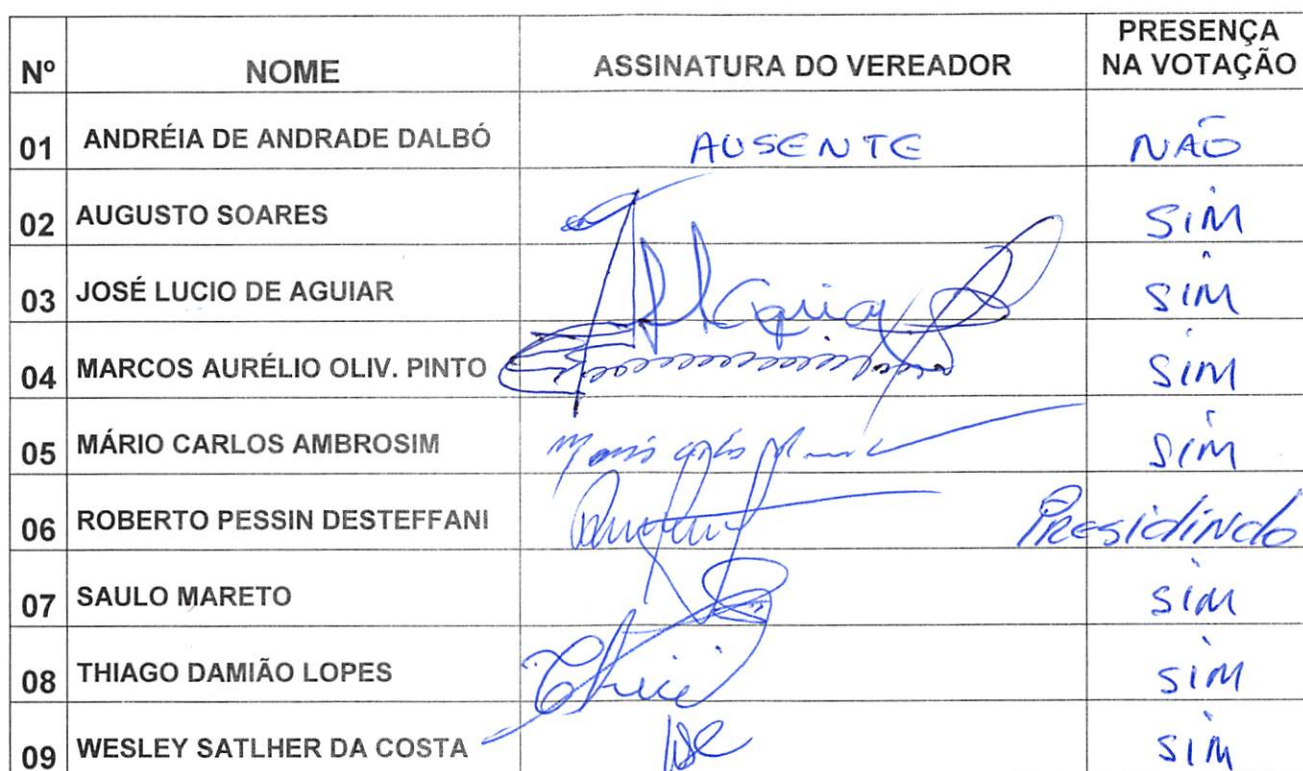 Nº NOME ASSINATURA DO VEREADOR PRESENÇA NA VOTAÇÃO
01 ANDRÉIA DE ANDRADE DALBÓ AUSENTE NÃO
02 AUGUSTO SOARES SIM
03 JOSÉ LUCIO DE AGUIAR SIM
04 MARCOS AURÉLIO OLIV. PINTO SIM
05 MÁRIO CARLOS AMBROSIM SIM
06 ROBERTO PESSIN DESTEFFANI Presidindo
07 SAULO MARETO SIM
08 THIAGO DAMIÃO LOPES SIM
09 WESLEY SATLHER DA COSTA SIM